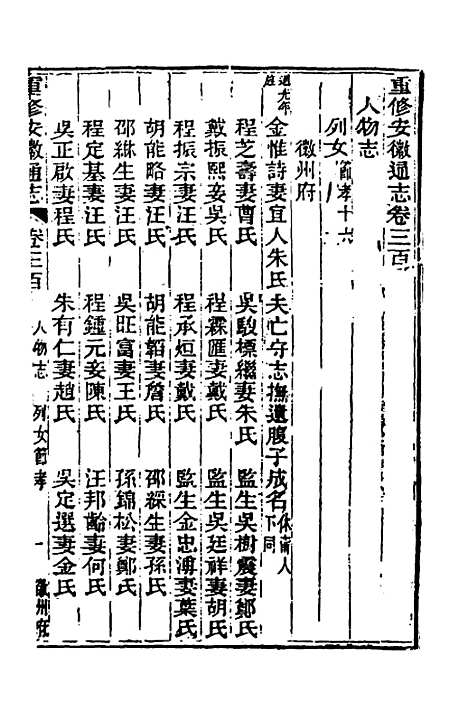 重修安徽通志卷三百
人物志
列女節孝十六
徽州府
道光年
旌
金惟詩妻宜人朱氏夫亡守志撫遺腹子成名休甯人下同
程芝壽妻曹氏 吳駿標繼妻朱氏 監生吳樹震妻鄭氏
戴振熙妾吳氏 程霖匯妻戴氏 監生吳廷祥妻胡氏
程振宗妻汪氏 程承烜妻戴氏 監生金忠溥妻葉氏
胡能略妻汪氏 胡能韜妻詹氏 邵綵生妻孫氏
邵綝生妻汪氏 吳旺富妻王氏 孫錦松妻鄭氏
程定基妻汪氏 程鍾元妾陳氏 汪邦齡妻何氏
吳正啟妻程氏 朱有仁妻趙氏 吳定選妻金氏
重修安徽通志 卷三百 人物志 列女節孝 一 徽州府